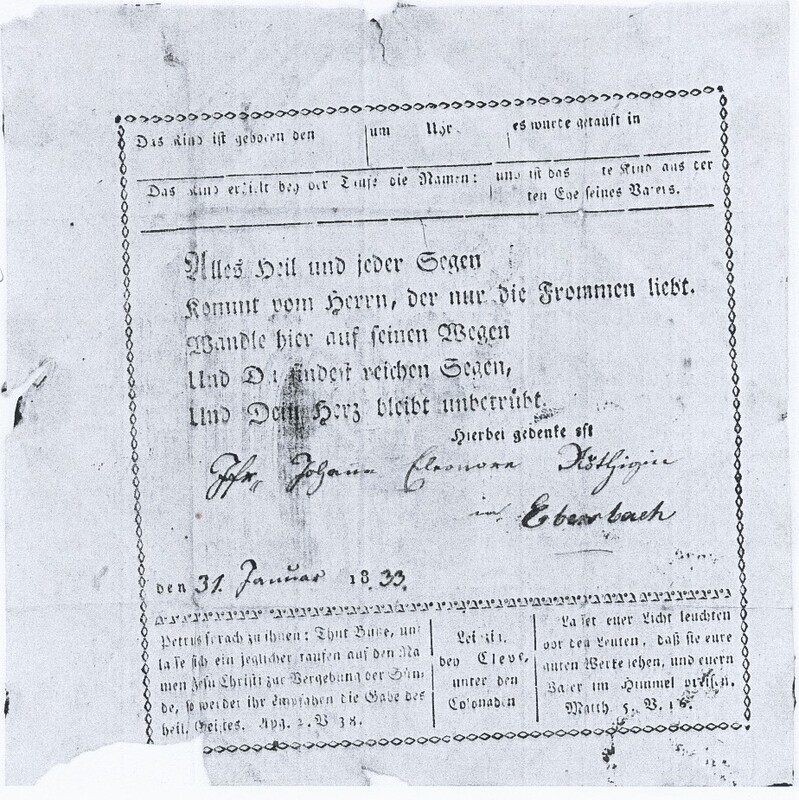 Das Kind ist geboren den um Uhr. es wurde getauft in
Das Kind erhielt bey der Taufe die Namen: und ist das te Kind aus der
ten Ehe seines Vaters.
Alles Heil und jeder Segen
Kommt vom Herrn, der nur die Frommen liebt.
Wandle hier auf seinen Wegen
Und Du findest reichen Segen,
Und Dein Herz bleibt unbetrübt.
Hierbei gedenke oft
Jfr. Johann Eleonora Röthigin
in Ebersbach
den 31. Januar 1833.
Petrus sprach zu ihnen: Thut Buße, und
lasse sich ein jeglicher taufen auf den Na
men Jesu Christi zur Vergebung der Sün
de, so werdet ihr empfahen die Gabe des
heil. Geistes. Apg. 2. V 38.
Leipzig,
bey Cleve,
unter den
Colonaden
Lasset euer Licht leuchten
vor den Leuten, daß sie eure
guten Werke sehen, und euern
Vater im Himmel preisen.
Matth. 5. V. 16.